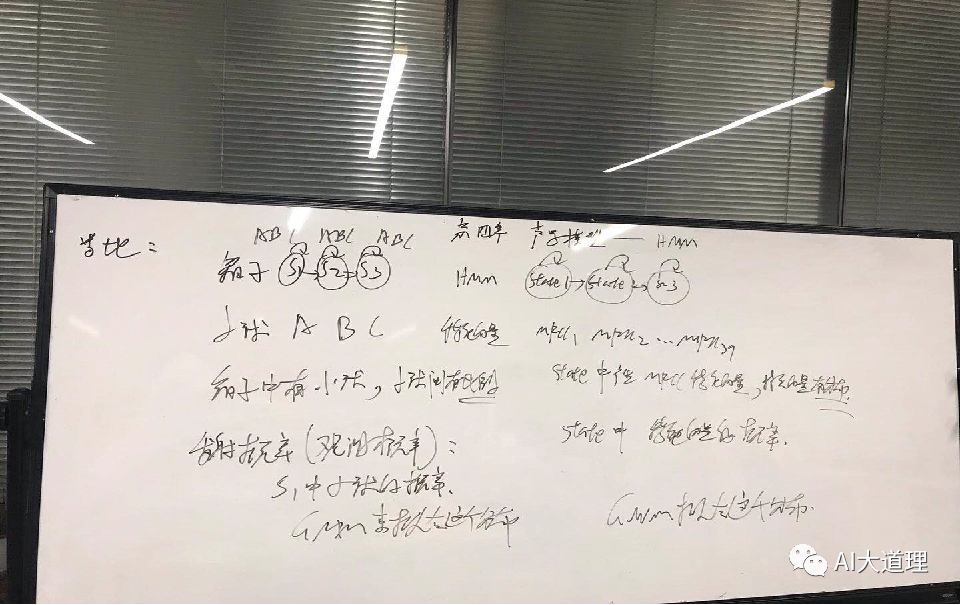 类比：
ABC ABC ABC
箱子 S1 S2 S3
小球 A B C
箱子中有小球，小球间有比例
发射概率(观测概率)：
S1中小球的概率.
GMM来拟合这个分布
声学模型 —— HMM
HMM state1 state2 s3
特征向量 MFCC1 MFCC2 ... MFCC39
state中产生MFCC特征向量，特征向量有分布.
state中 特征向量的概率.
GMM拟合这个分布.
AI大道理